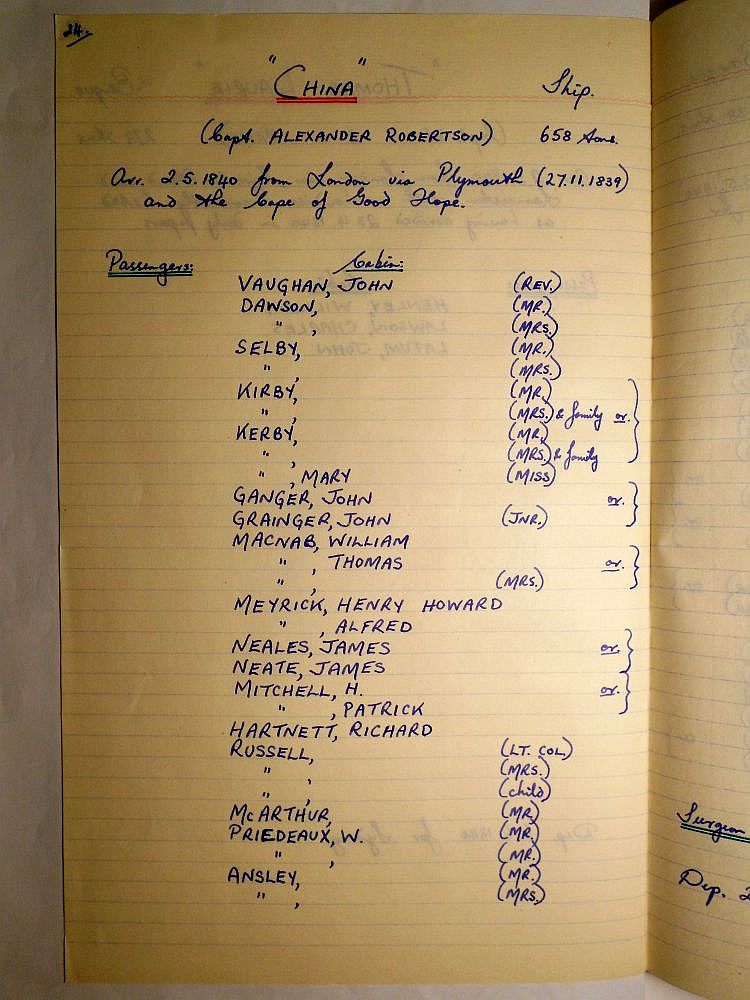 24.
"CHINA" Ship.
(Capt. ALEXANDER ROBERTSON) 658 tons.
Arr. 2.5.1840 from London via Plymouth (27.11.1839)
and the Cape of Good Hope.
Passengers: Cabin:
VAUGHAN, JOHN (REV.)
DAWSON, (MR.)
" , (MRS.)
SELBY, (MR.)
" , (MRS.)
KIRBY, (MR.)
" , (MRS.) & family or. }
KERBY, (MR.)
" , (MRS.) & family
" , MARY (MISS)
GANGER, JOHN or. }
GRAINGER, JOHN (JNR.)
MACNAB, WILLIAM
" , THOMAS or. }
" , (MRS.)
MEYRICK, HENRY HOWARD
" , ALFRED
NEALES, JAMES or. }
NEATE, JAMES
MITCHELL, H. or. }
" , PATRICK
HARTNETT, RICHARD
RUSSELL, (LT. COL)
" , (MRS.)
" , (child)
McARTHUR, (MR.)
PRIEDEAUX, W. (MR.)
" , (MR.)
ANSLEY, (MR.)
" , (MRS.)
Surgeon
Dep. 2